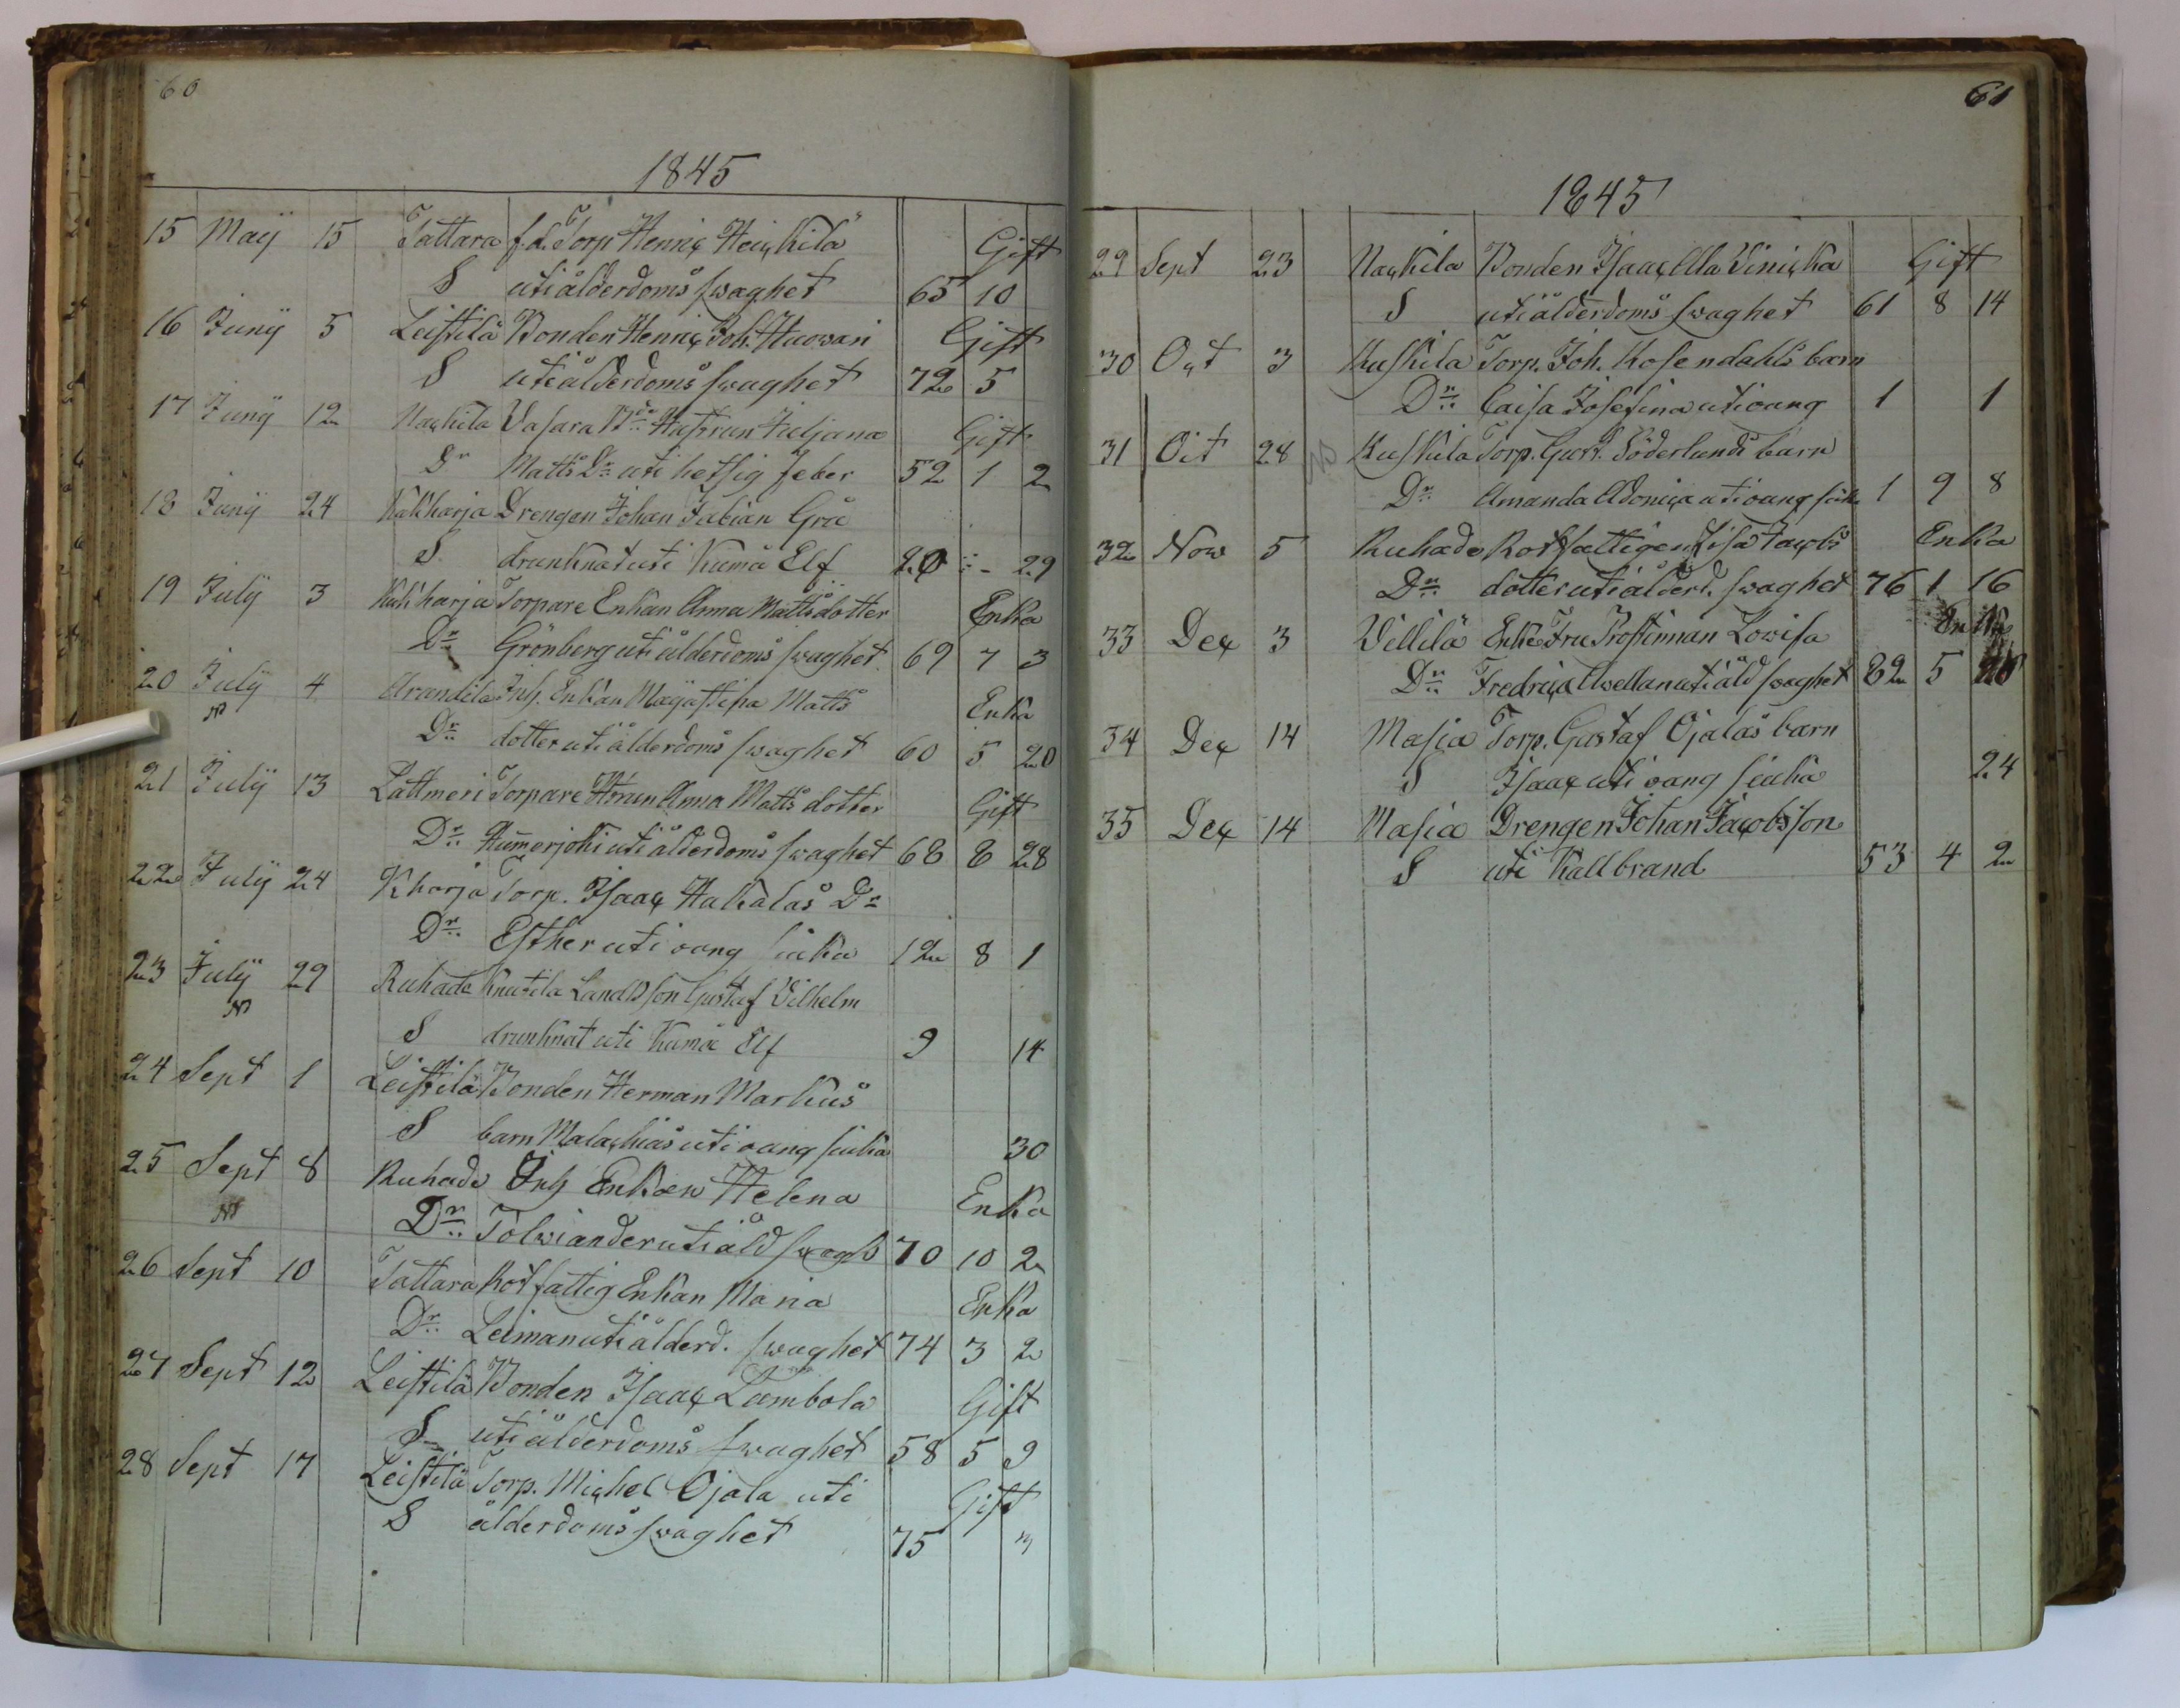 60
1845
15 Maij 15 Tattara f.d. Torp Henric Heickilä Gift
S uti ålderdoms swaghet 65 10
16 Junij 5 Leistilä Bonden Henric Joh. Huowari Gift
S uti ålderdoms swaghet 72 5
17 Junij 12 Nackila Vasara Hustrun Juljana Gift
Dr Matts Dr uti hetsig feber 52 1 2
18 Junij 24 Kukharja Drengen Johan Fabian Grå
S drunknat uti Kumå Elf 20 - 29
19 Julij 3 Kukharja Torpare Enkan Anna Mattsdotter Enka
Dr Grönberg uti ålderdoms swaghet 69 7 3
20 Julij 4 Arandila Inh. Enkan Majastina Matts Enka
Dr dotter uti ålderdoms swaghet 60 5 20
21 Julij 13 Lattmeri Torpare Hstrun Anna Matts dotter Gift
Dr Hummerjoki uti ålderdoms swaghet 68 8 28
22 Julij 24 Kharja Torp. Isaac Hakalas Dr
Dr Esther uti oang siuka 12 8 1
23 Julij 29 Ruhade Knutila Landb son Gustaf Vilhelm
S drunknat uti Kumå Elf 9 14
24 Sept 1 Leistilä Bonden Herman Markus
S barn Malachias uti oang siuka 30
25 Sept 8 Ruhade Inh Enkan Helena Enka
Dr Tolwiander uti åld swagh 70 10 2
26 Sept 10 Tattara Rotfattig Enkan Maria Enka
Dr Leiman uti ålderd. swaghet 74 3 2
27 Sept 12 Leistilä Bonden Isaac Lambola Gift
S uti ålderdoms swaghet 58 5 9
28 Sept 17 Leistilä Torp. Michel Ojala uti Gift
S ålderdoms swaghet 75 3
61
1845
29 Sept 23 Nackila Bonden Isaac Ulla Vinicka Gift
S uti ålderdoms swaghet 61 8 14
30 Oct 3 Kuskila Torp. Joh. Rosendahls barn
Dr Caisa Josefina uti oang 1 1
31 Oct 28 Kuskila Torp. Gust. Söderlunds barn
Dr Amanda Adonica uti oang siuk 1 9 8
32 Now 5 Ruhade Rotfattigen Lisa Jacobs Enka
Dr dotter uti ålderd. swaghet 76 1 16
33 Dec 3 Villilä Enke Fru Prostinnan Lowisa Enka
Dr Fredrica Awellan uti åld swaghet 82 5
34 Dec 14 Masia Torp. Gustaf Ojalas barn
S Isaac uti oang siuka 24
35 Dec 14 Masia Drengen Johan Jacobsson
S uti Kallbrand 53 4 2